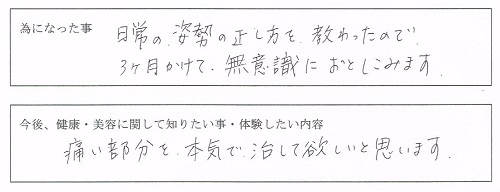 為になった事
日常の姿勢の正し方を、教わったので
3ヶ月かけて、無意識におとしこみます
今後、健康・美容に関して知りたい事・体験したい内容
痛い部分を、本気で、治して欲しいと思います。